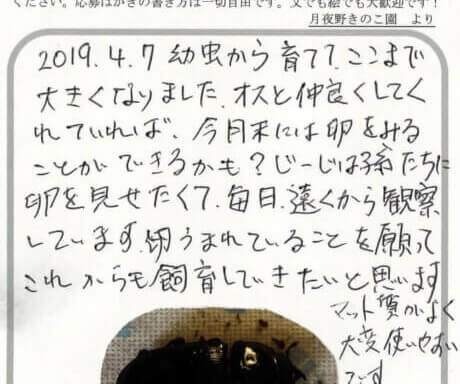 ください。応募はがきの書き方は一切自由です。文でも絵でも大歓迎です！
月夜野きのこ園　より
2019.4.7 幼虫から育てて、ここまで
大きくなりました。オスと仲良くしてく
れていれば、今月末には卵をみる
ことができるかも？じーじは孫たちに
卵を見せたくて、毎日、遠くから観察
しています。卵うまれていることを願って
これからも飼育していきたいと思います
マット質がよく
大変使いやすい
です